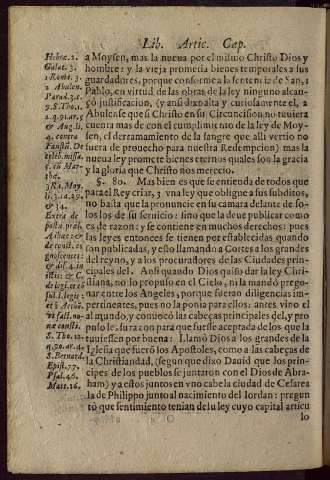 Lib. Artic. Cap.
Hebræ. 2.
Galat. 3.
1 Roma. 3.
2 Abulen.
Parad. 3. c.
9. S. Tho. 1.
2. q. 91. ar. 5
& Aug. li.
4. contra
Fausti. De
& 34.
Extra de
& dis. 4. in
S. Tho. 12.
q. 90. ar. 4.
S. Bernard.
Epist. 77.
Psal. 46.
Matt. 16.
a Moysen, mas la nueua por el mismo Christo Dios y
hombre: y la vieja prometia bienes temporales a sus
guardadores, porque conforme a la sentencia de San, 1
Pablo, en virtud de las obras de la ley ninguno alcan-
çò justificacion, (y ansi dixo alta y curiosamente el, 2
Abulense que si Christo en su Circuncision no tuuiera
cuenta mas de con el cumplimiento de la ley de Moy-
sen, el derramamiento de la sangre que alli vertio no
fuera de prouecho para nuestra Redempcion) mas la
nueua ley promete bienes eternos quales son la gracia
y la gloria que Christo nos merecio.
§. 80. Mas bien es que se entienda de todos que
para el Rey criar, 3 vna ley que obligue a sus subditos,
no basta que la pronuncie en su camara delante de so-
los los de su seruicio: sino que la deue publicar como
es de razon: y se contiene en muchos derechos: pues
las leyes entonces se tienen por establecidas quando
son publicadas, y esso llamando a Cortes a los grandes
del reyno, y a los procuradores de las Ciudades prin-
cipales del. Ansi quando Dios quiso dar la ley Chri-
stiana, no lo propuso en el Cielo, ni la mandò prego-
nar entre los Angeles, porque fueran diligencias im-
pertinentes, pues no la ponia para ellos: antes vino el
al mundo, y conuocò las cabeças principales del, y pro
puso le, sura zon para que fuesse aceptada de los que la
tuuiessen por buena: Llamò Dios a los grandes de la
Iglesia que fuerõ los Apostoles, como a las cabeças de
la Christiandad, (segun que dixo Dauid que los prin-
cipes de los pueblos se juntaron con el Dios de Abra-
ham) y a estos juntos en vno cabe la ciudad de Cesarea
la de Philippo junto al nacimiento del Iordan: pregun
tò que sentimiento tenian de lu ley cuyo capital articu
lo